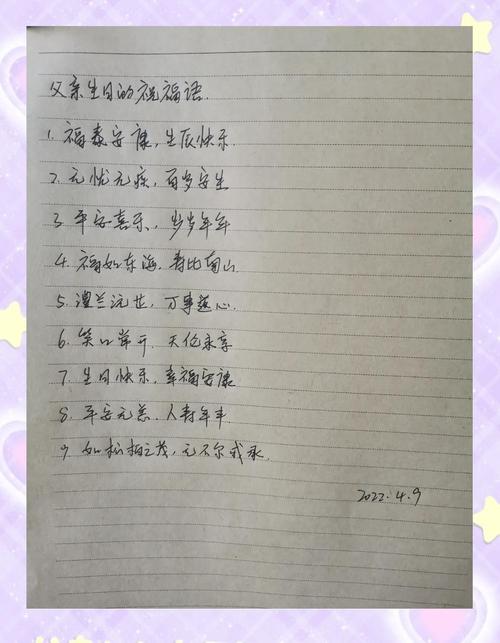 父亲生日的祝福语.
1. 福泰安康，生辰快乐.
2. 无忧无疾，百岁安生
3. 平安喜乐，岁岁年年
4. 福如东海，寿比南山
5. 澧兰沅芷，万事遂心.
6. 笑口常开，天伦永享
7. 生日快乐，幸福安康
8. 平安无恙，人寿年丰
9. 如松柏之茂，无不尔或承.
2022.4.9